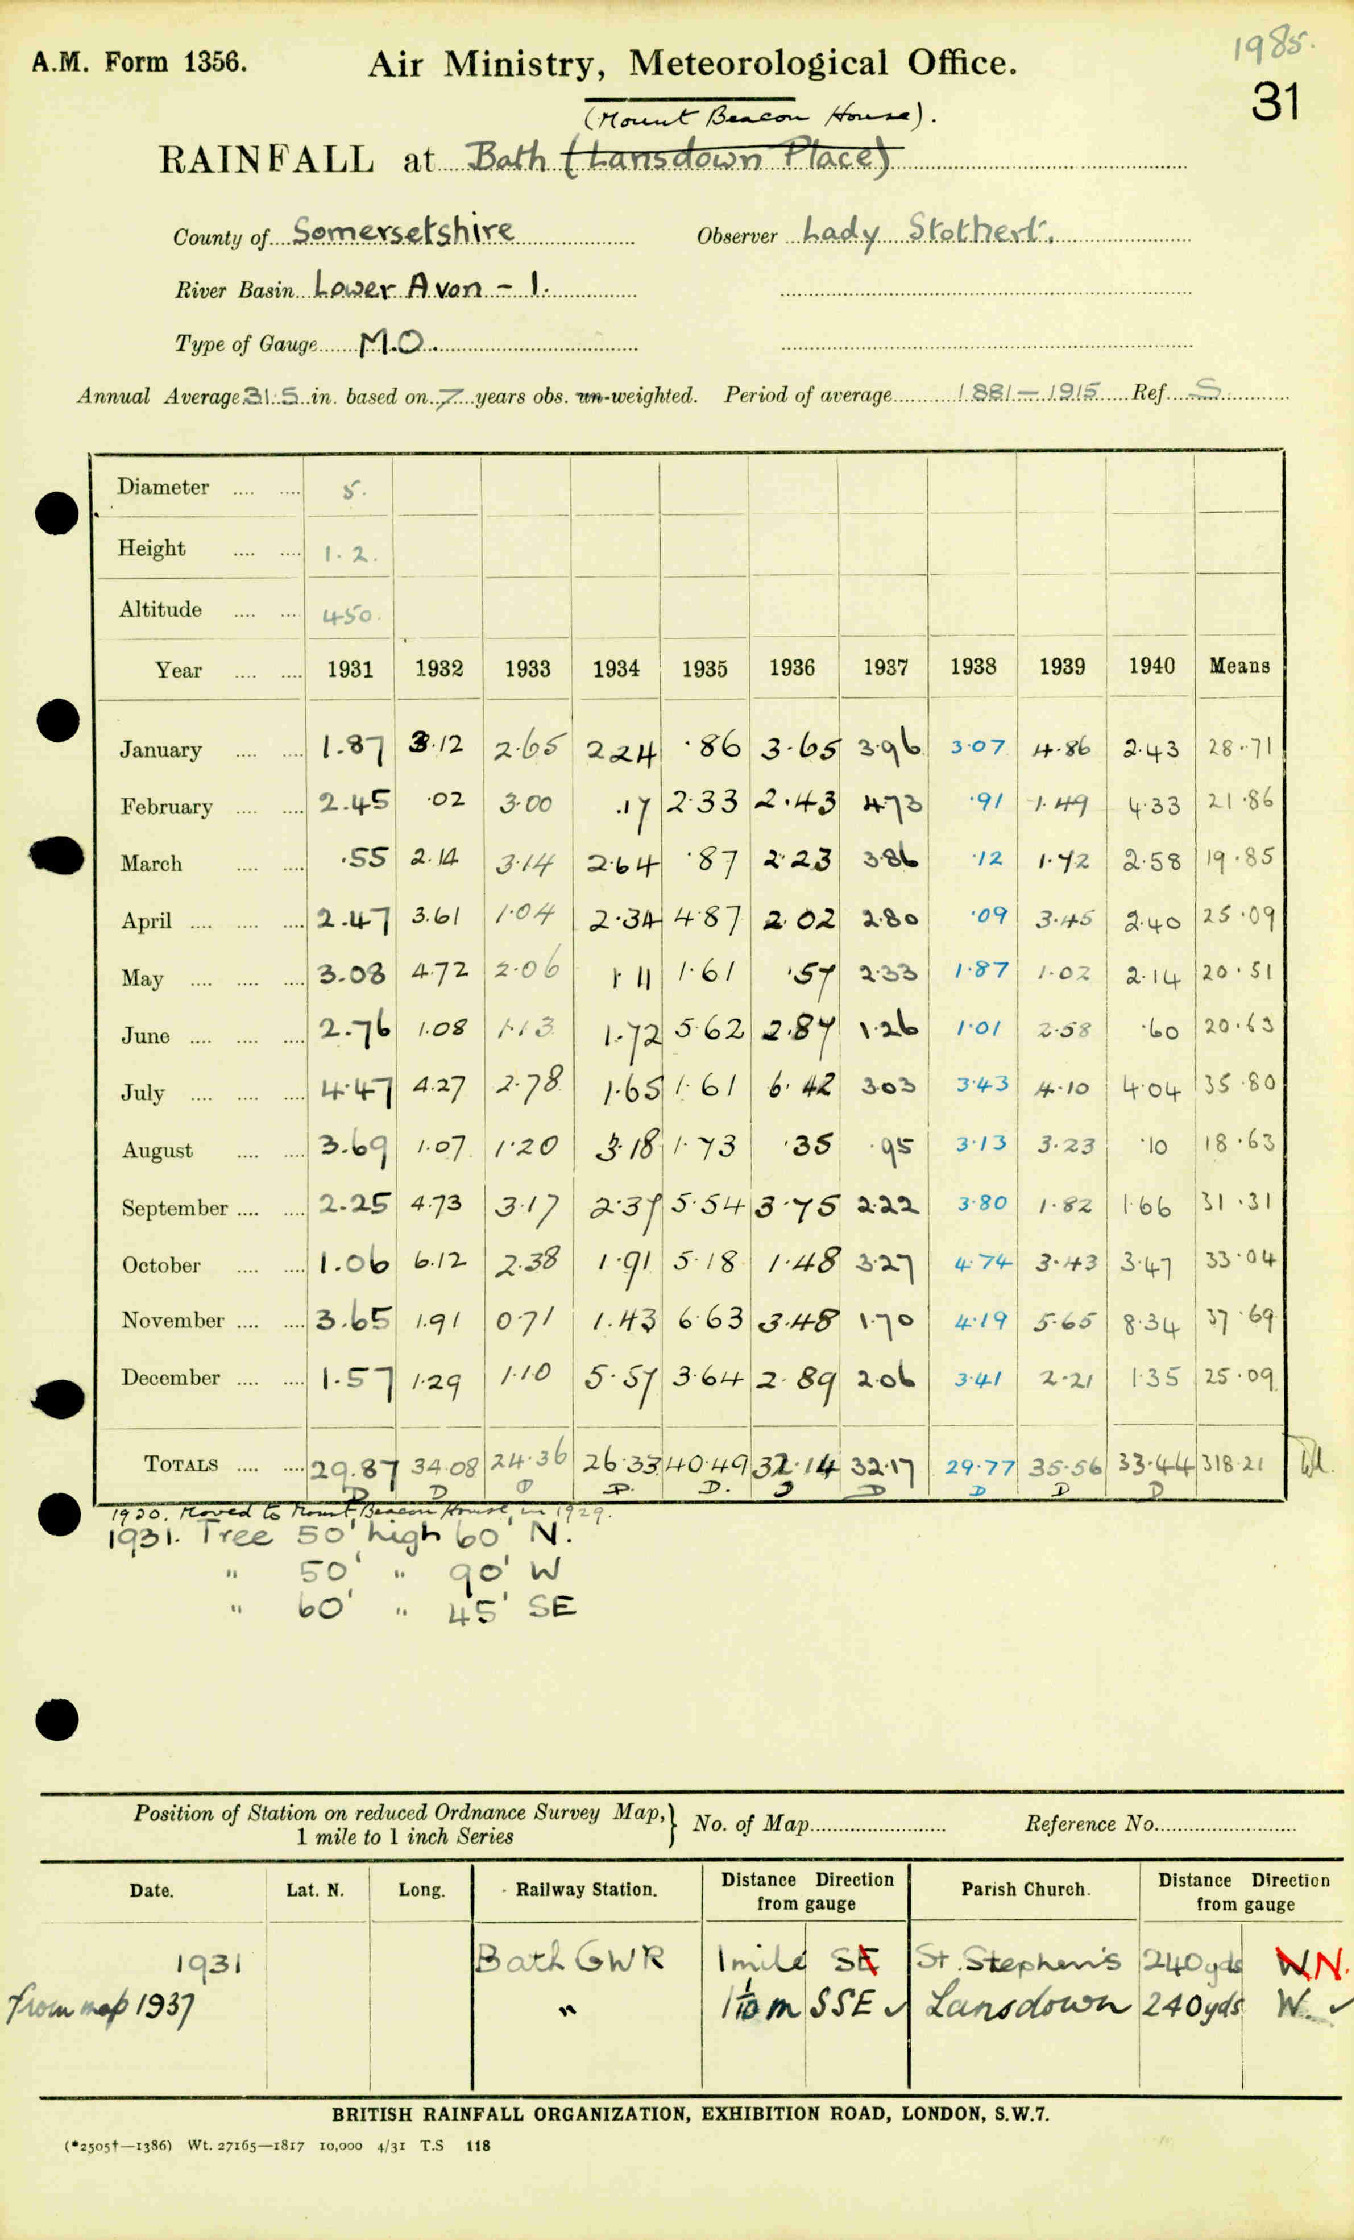 1985.
A.M. Form 1356. Air Ministry, Meteorological Office. 31
(Mount Beacon House).
RAINFALL at Bath (Lansdown Place)
County of Somersetshire Observer Lady Stothert.
River Basin Lower Avon - 1.
Type of Gauge M.O.
Annual Average 31.5 in. based on 7 years obs. un-weighted. Period of average 1881-1915 Ref. S
Diameter .... .... 5.
Height .... .... 1.2.
Altitude .... .... 450.
Year .... .... 1931 1932 1933 1934 1935 1936 1937 1938 1939 1940 Means
January .... .... 1.87 3.12 2.65 2.24 .86 3.65 3.96 3.07 4.86 2.43 28.71
February .... .... 2.45 .02 3.00 .17 2.33 2.43 4.73 .91 1.49 4.33 21.86
March .... .... .55 2.14 3.14 2.64 .87 2.23 3.86 .12 1.72 2.58 19.85
April .... .... .... 2.47 3.61 1.04 2.34 4.87 2.02 2.80 .09 3.45 2.40 25.09
May .... .... .... 3.08 4.72 2.06 1.11 1.61 .57 2.33 1.87 1.02 2.14 20.51
June .... .... .... 2.76 1.08 1.13 1.72 5.62 2.87 1.26 1.01 2.58 .60 20.63
July .... .... .... 4.47 4.27 2.78 1.65 1.61 6.42 3.03 3.43 4.10 4.04 35.80
August .... .... 3.69 1.07 1.20 3.18 1.73 .35 .95 3.13 3.23 .10 18.63
September .... .... 2.25 4.73 3.17 2.37 5.54 3.75 2.22 3.80 1.82 1.66 31.31
October .... .... 1.06 6.12 2.38 1.91 5.18 1.48 3.27 4.74 3.43 3.47 33.04
November .... .... 3.65 1.91 0.71 1.43 6.63 3.48 1.70 4.19 5.65 8.34 37.69
December .... .... 1.57 1.29 1.10 5.57 3.64 2.89 2.06 3.41 2.21 1.35 25.09
TOTALS .... .... 29.87 34.08 24.36 26.33 40.49 32.14 32.17 29.77 35.56 33.44 318.21
D D D D. D. D D D D D
1930. Moved to Mount Beacon House, in 1929.
1931. Tree 50' high 60' N.
" 50' " 90' W
" 60' " 45' SE
Position of Station on reduced Ordnance Survey Map, } No. of Map Reference No.
1 mile to 1 inch Series
Date. Lat. N. Long. Railway Station. Distance Direction from gauge Parish Church. Distance Direction from gauge
1931 Bath GWR 1 mile SE St. Stephen's 240 yds W N.
from map 1937 " 1 1/10 m SSE ✓ Lansdown 240 yds W. ✓
BRITISH RAINFALL ORGANIZATION, EXHIBITION ROAD, LONDON, S.W.7.
(*2505†—1386) Wt. 27165—1817 10,000 4/31 T.S 118